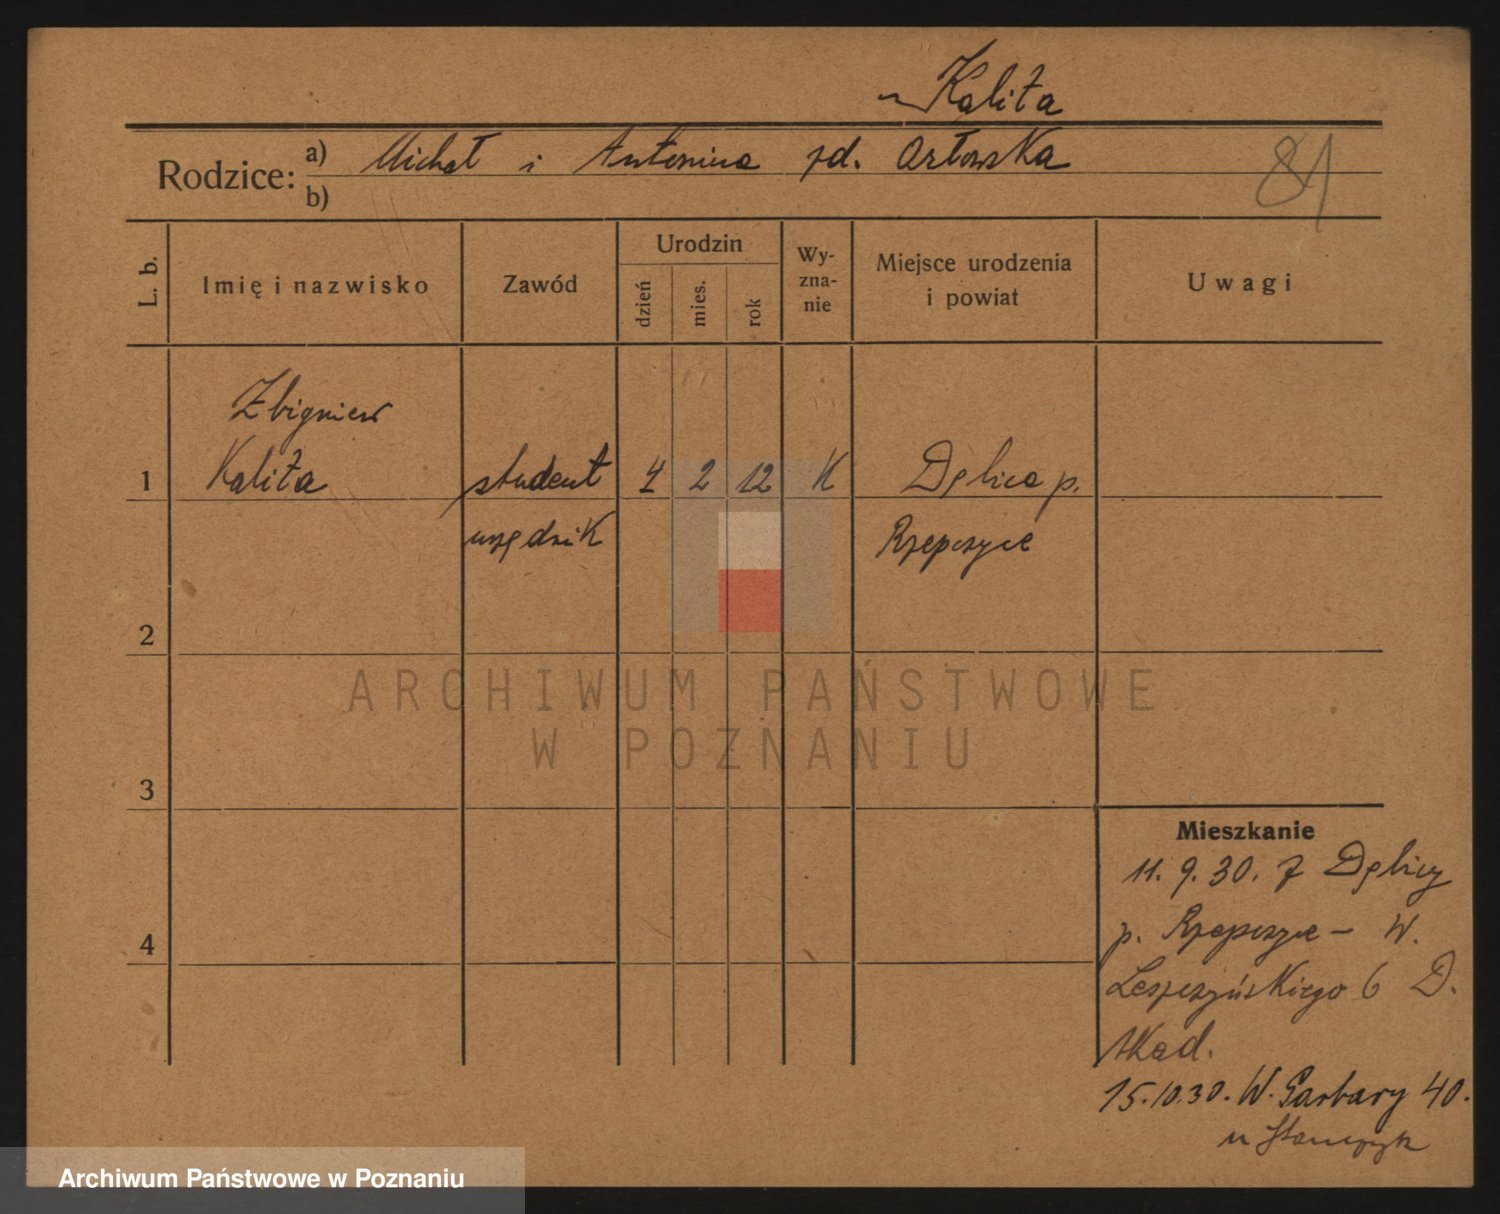 Kalita
Rodzice: a) Michał i Antonina zd. Orłowska
b)
81
L. b.
Imię i nazwisko
Zawód
Urodzin
dzień
mies.
rok
Wy-
zna-
nie
Miejsce urodzenia
i powiat
Uwagi
Zbigniew
1 Kalita student 4 2 12 K Dębica p.
urzędnik
2
3
4
ARCHIWUM PAŃSTWOWE
W POZNANIU
Mieszkanie
11. 9. 30. z Dębicy
p. - W.
6 D.
Akad.
15.10.30. W. Garbary 40.
u
Archiwum Państwowe w Poznaniu